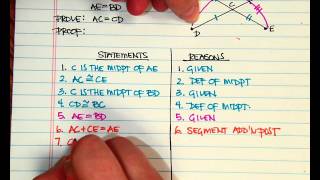 AE = BD
PROVE: AC = CD
PROOF:
C
D
E
STATEMENTS REASONS
1. C IS THE MIDPT OF AE 1. GIVEN
2. AC ≅ CE 2. DEF OF MIDPT
3. C IS THE MIDPT OF BD 3. GIVEN
4. CD ≅ BC 4. DEF OF MIDPT.
5. AE = BD 5. GIVEN
6. AC + CE = AE 6. SEGMENT ADD'N POST
7.